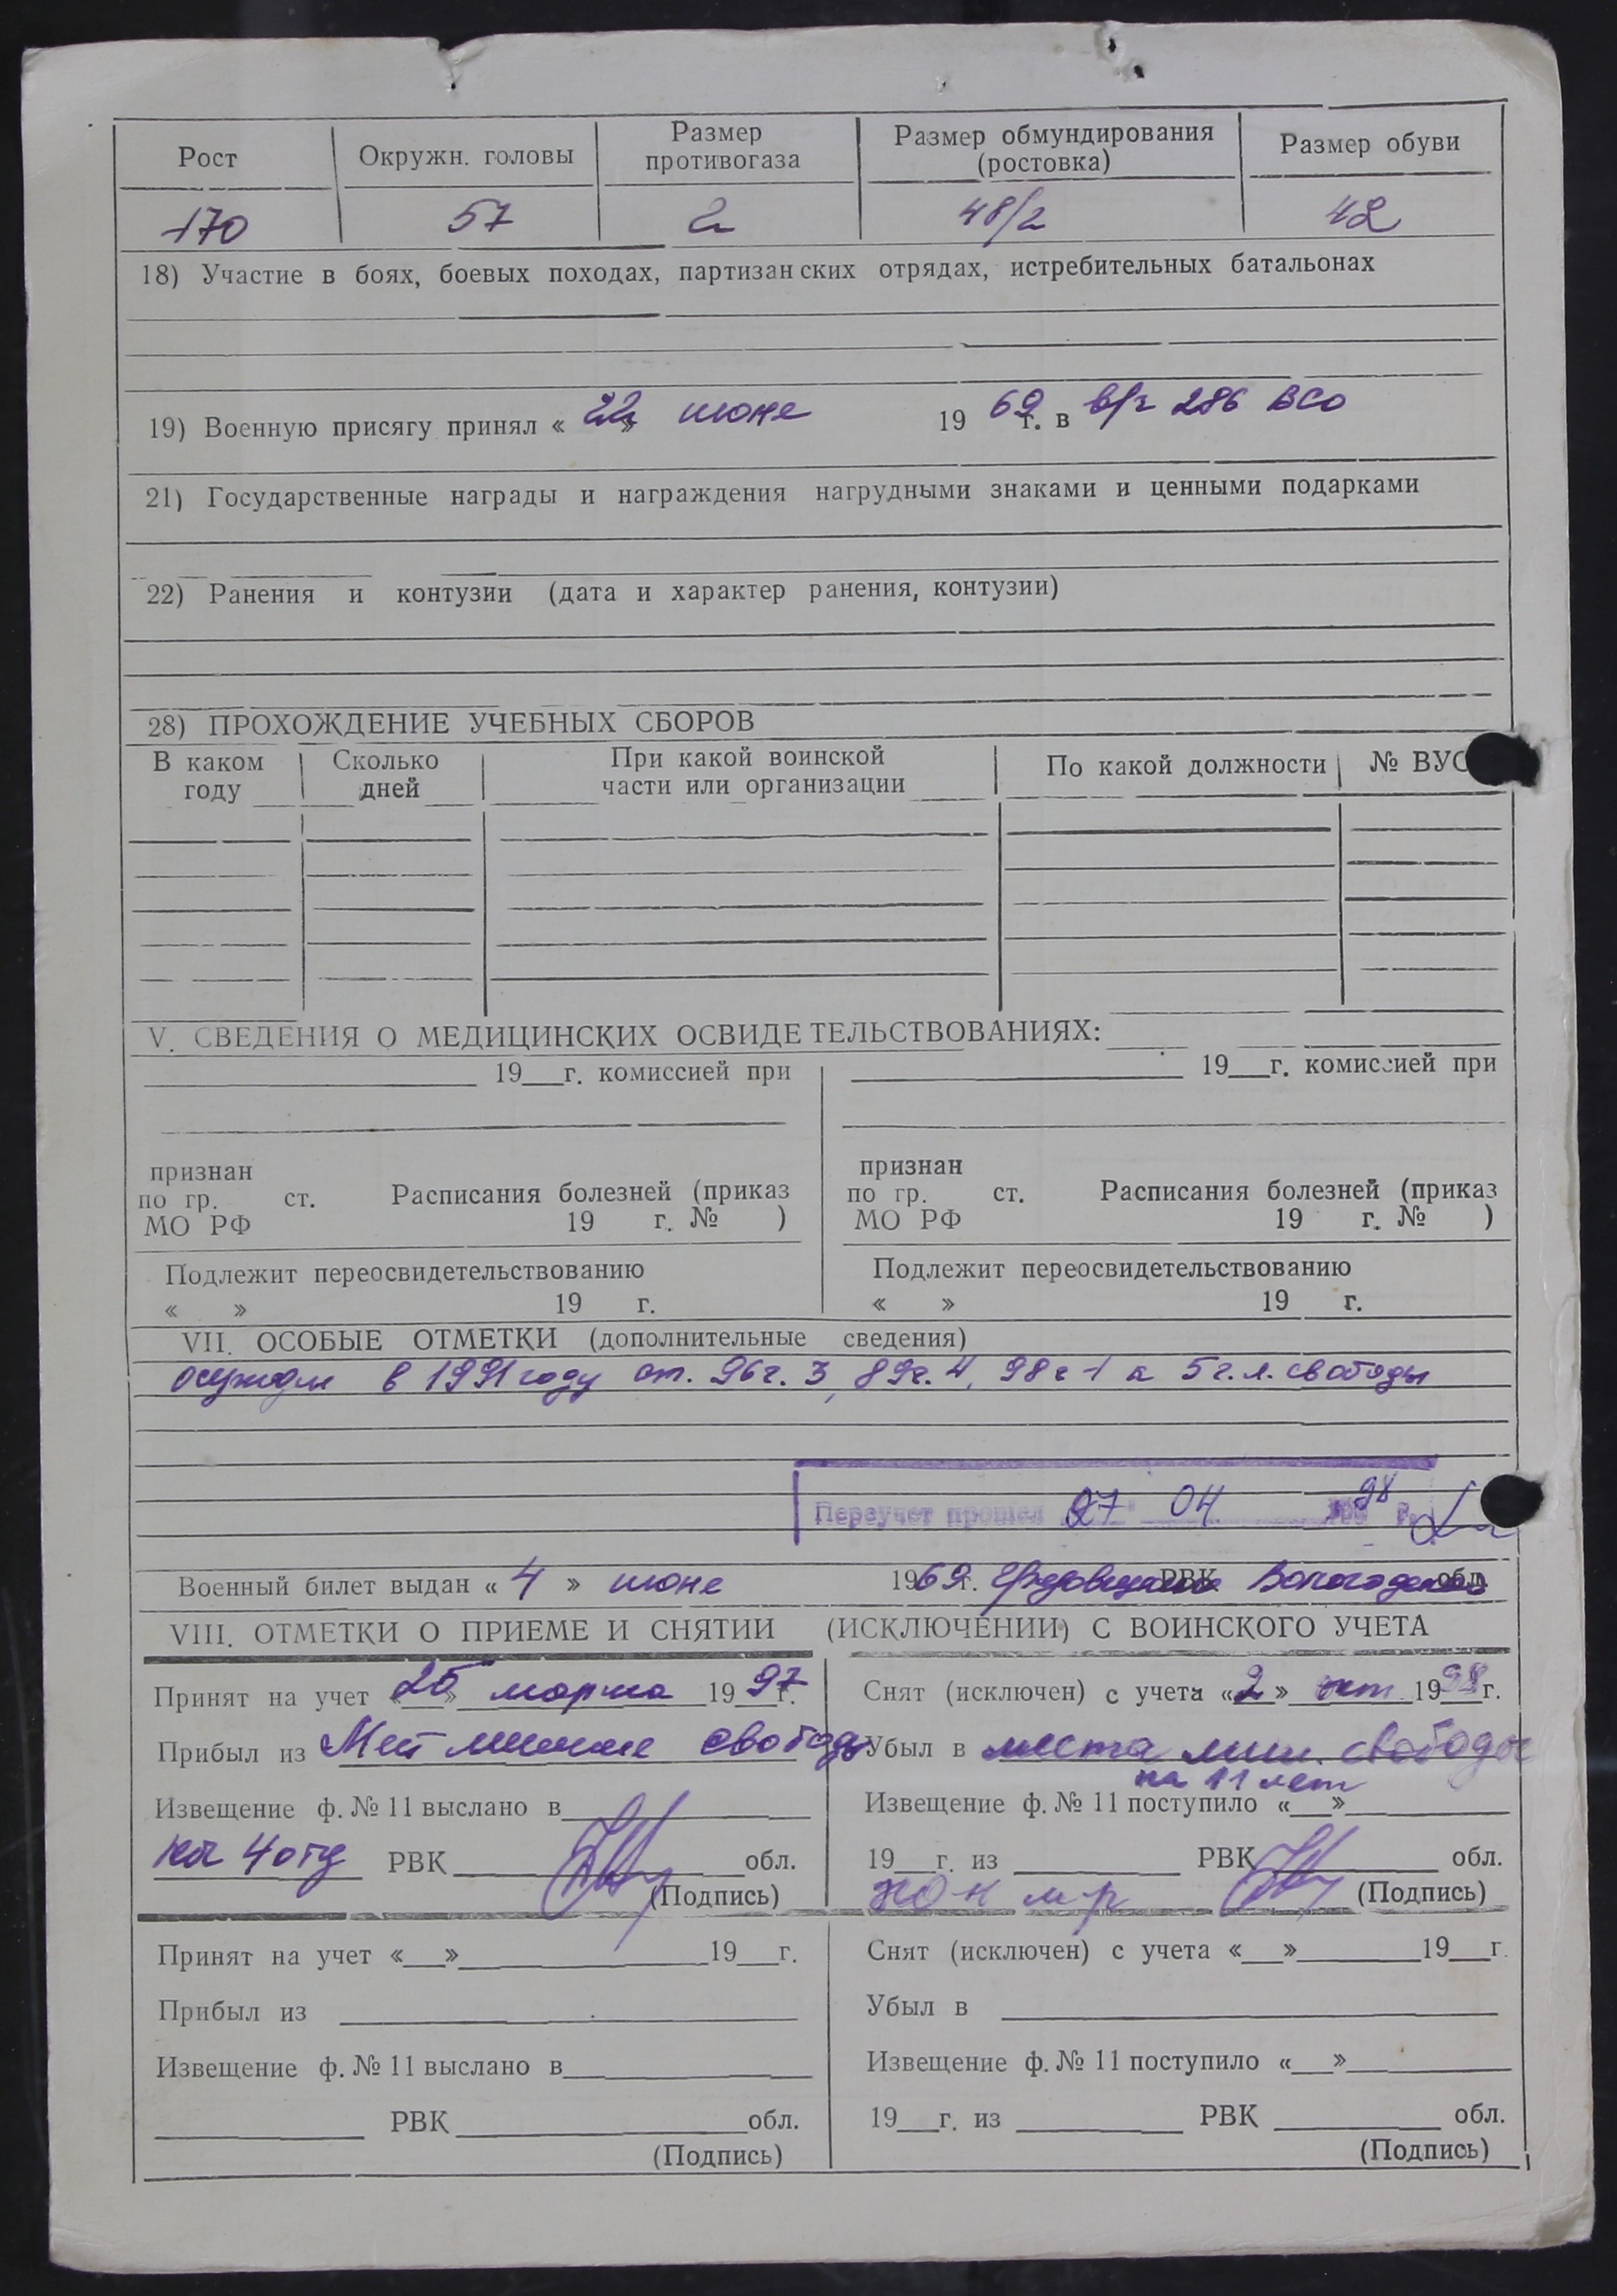 Рост Окружн. головы Размер противогаза Размер обмундирования (ростовка) Размер обуви
170 57 2 48/2 42
18) Участие в боях, боевых походах, партизанских отрядах, истребительных батальонах
19) Военную присягу принял « 22 » июне 19 69 г. в в/ч 286 ВСО
21) Государственные награды и награждения нагрудными знаками и ценными подарками
22) Ранения и контузии (дата и характер ранения, контузии)
28) ПРОХОЖДЕНИЕ УЧЕБНЫХ СБОРОВ
В каком году Сколько дней При какой воинской части или организации По какой должности № ВУС
V. СВЕДЕНИЯ О МЕДИЦИНСКИХ ОСВИДЕТЕЛЬСТВОВАНИЯХ:
19__г. комиссией при 19__г. комиссией при
признан признан
по гр. ст. Расписания болезней (приказ по гр. ст. Расписания болезней (приказ
МО РФ 19 г. № ) МО РФ 19 г. № )
Подлежит переосвидетельствованию Подлежит переосвидетельствованию
« » 19 г. « » 19 г.
VII. ОСОБЫЕ ОТМЕТКИ (дополнительные сведения)
осужден в 1991 году ст. 96 ч. 3, 89 ч. 4, 98 ч 1 к 5 г. л. свободы
Переучет прошел 27 04 98 г.
Военный билет выдан « 4 » июне 1969 г. РВК Вологодской обл.
VIII. ОТМЕТКИ О ПРИЕМЕ И СНЯТИИ (ИСКЛЮЧЕНИИ) С ВОИНСКОГО УЧЕТА
Принят на учет « 25 » марта 19 97 г. Снят (исключен) с учета « 2 » окт. 19 98 г.
Прибыл из Мест лишение свободы Убыл в места лиш. свободы
на 11 лет
Извещение ф. № 11 выслано в Извещение ф. № 11 поступило «__»
4 отд РВК обл. 19__г. из РВК обл.
(Подпись) (Подпись)
Принят на учет «__» 19__г. Снят (исключен) с учета «__» 19__г.
Прибыл из Убыл в
Извещение ф. № 11 выслано в Извещение ф. № 11 поступило «__»
РВК обл. 19__г. из РВК обл.
(Подпись) (Подпись)